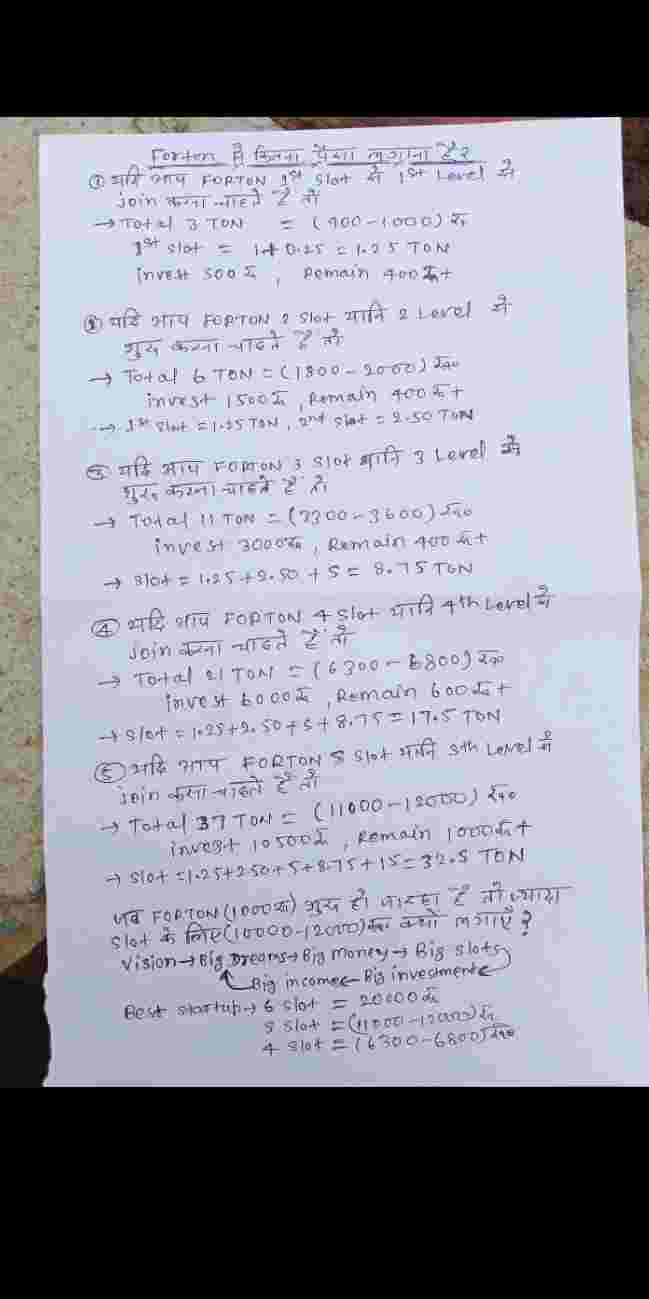 Forton में कितना पैसा लगाना है?
① यदि आप FORTON 1st Slot से 1st Level से
join करना चाहते हैं तो
→ Total 3 TON = (900-1000) रू
1st slot = 1+0.25 = 1.25 TON
invest 500रू, Remain 400रू+
② यदि आप FORTON 2 Slot यानि 2 Level से
शुरू करना चाहते हैं तो
→ Total 6 TON = (1800-2000) रू०
invest 1500रू, Remain 400रू+
→ 1st slot = 1.25 TON, 2nd slot = 2.50 TON
③ यदि आप FORTON 3 Slot यानि 3 Level से
शुरू करना चाहते हैं तो
→ Total 11 TON = (3300-3600) रू०
invest 3000रू, Remain 400रू+
→ Slot = 1.25+2.50+5 = 8.75 TON
④ यदि आप FORTON 4 Slot यानि 4th Level से
join करना चाहते हैं तो
→ Total 21 TON = (6300-6800) रू०
invest 6000रू, Remain 600रू+
→ Slot = 1.25+2.50+5+8.75 = 17.5 TON
⑤ यदि आप FORTON 5 Slot यानि 5th Level से
join करना चाहते हैं तो
→ Total 37 TON = (11000-12000) रू०
invest 10500रू, Remain 1000रू+
→ Slot = 1.25+2.50+5+8.75+15 = 32.5 TON
जब FORTON (1000रू) शुरू हो जा रहा है तो ज्यादा
Slot के लिए (10000-12000) रू० क्यों लगाएँ?
Vision → Big Dreams → Big Money → Big Slots
Big income ← Big investment ←
Best startup → 6 slot = 20000रू
5 slot = (11000-12000)रू
4 slot = (6300-6800)रू०